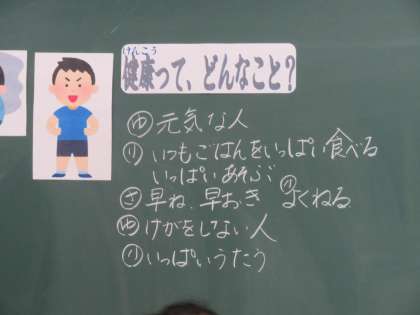 けんこう
健康って、どんなこと？
ゆ 元気な人
り いつもごはんをいっぱい食べる
いっぱいあそぶ
さ 早ね、早おき り よくねる
ゆ けがをしない人
り いっぱいうたう